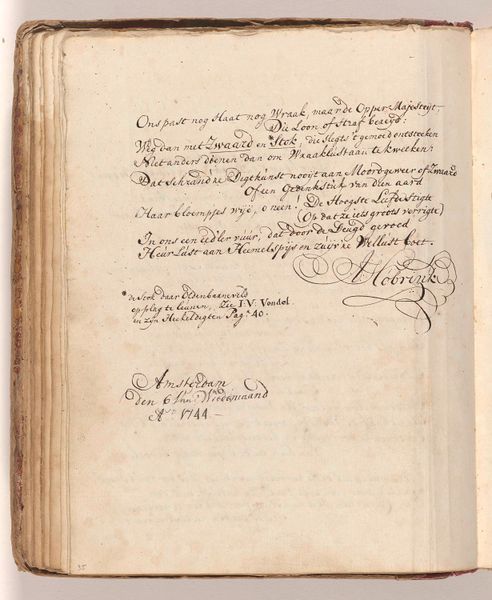 Ons past nog Haat nog Wraak, maar de Opper Majesteyt,
Die Loon of Straf bereyd:
Weg dan met Zwaard en *Stok, die slegts 't gemoed ontsteeken
Niet anders dienen dan om Wraaklust aan te kweeken:
Dat schrand're Digtkunst nooyt aan Moordgeweer of Zwaard
Of een Gedenkstuk van dien aard
Haar bloempjes wijd, o neen! De Hoogste Liefde stigte
(Op dat ze iets groots verrigte)
In ons een ed'ler vuur, dat door de Deugd gevoed
Heur Lust aan Hemelspijs en zuiv're Wellust boet.
A Hobrink
* de Stok daar Oldenbarneveld
op plag te leunen, Zie J.V: Vondel
in zijn Hekeldigten Pag: 40.
Amsterdam
den 6 Wiedemaand
Ao 1744 —
35